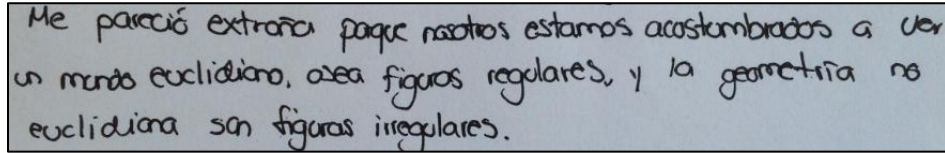 Me pareció extraña porque nosotros estamos acostumbrados a ver
un mundo euclidiano, osea figuras regulares, y la geometría no
euclidiana son figuras irregulares.